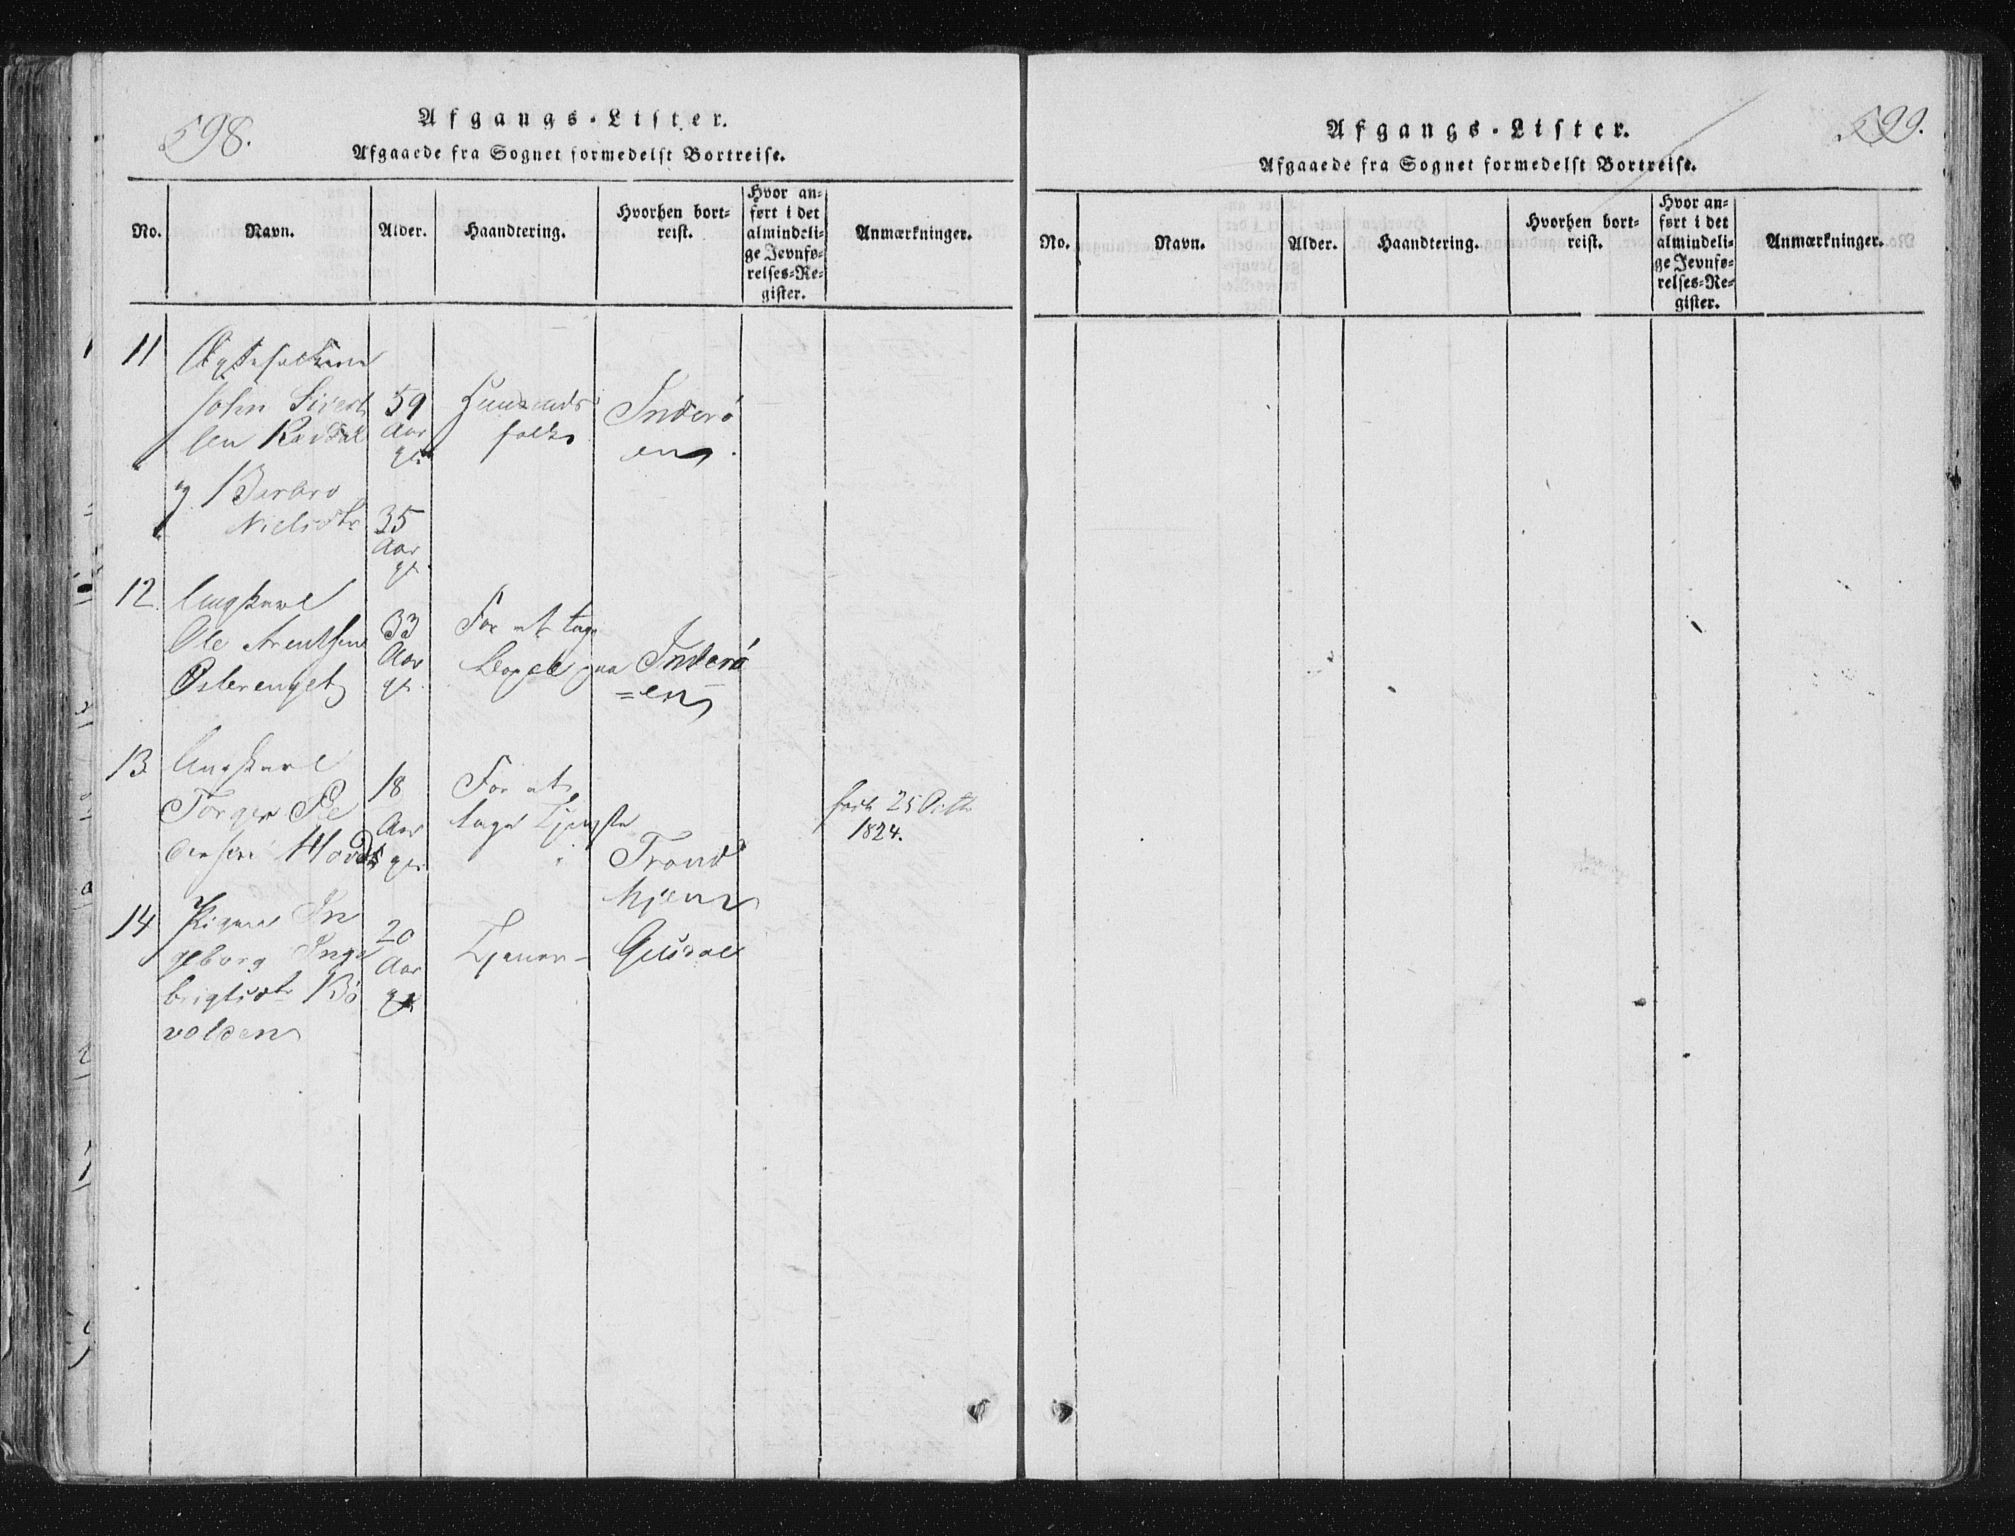 598.
Afgangs-Lister.
Afgaaede fra Sognet formedelst Bortreise.
No.
Navn.
Alder.
Haandtering.
Hvorhen bort-
reist.
Hvor an-
ført i det
almindeli-
ge Jevnfø-
relses-Re-
gister.
Anmærkninger.
11
Ægtefolkene
John Sivert
sen
59
Aar
gl.
Huusmands
folk
Inderø
en
og Berbro
Nielsdtr
35
Aar
gl.
12
Ungkarl
Ole Arentsen
Østerenget
33
Aar
gl.
For at tage
paa
Inderø
=en
13
Ungkarl
Torger Pe
dersen
18
Aar
gl.
For at
tage Tjeneste
Trond
hjem
1824.
14
Pigen In
geborg Inge
brigtsdtr Bø
volden
20
Aar
gl.
Tjener
599.
Afgangs-Lister.
Afgaaede fra Sognet formedelst Bortreise.
No.
Navn.
Alder.
Haandtering.
Hvorhen bort-
reist.
Hvor an-
ført i det
almindeli-
ge Jevnfø-
relses-Re-
gister.
Anmærkninger.